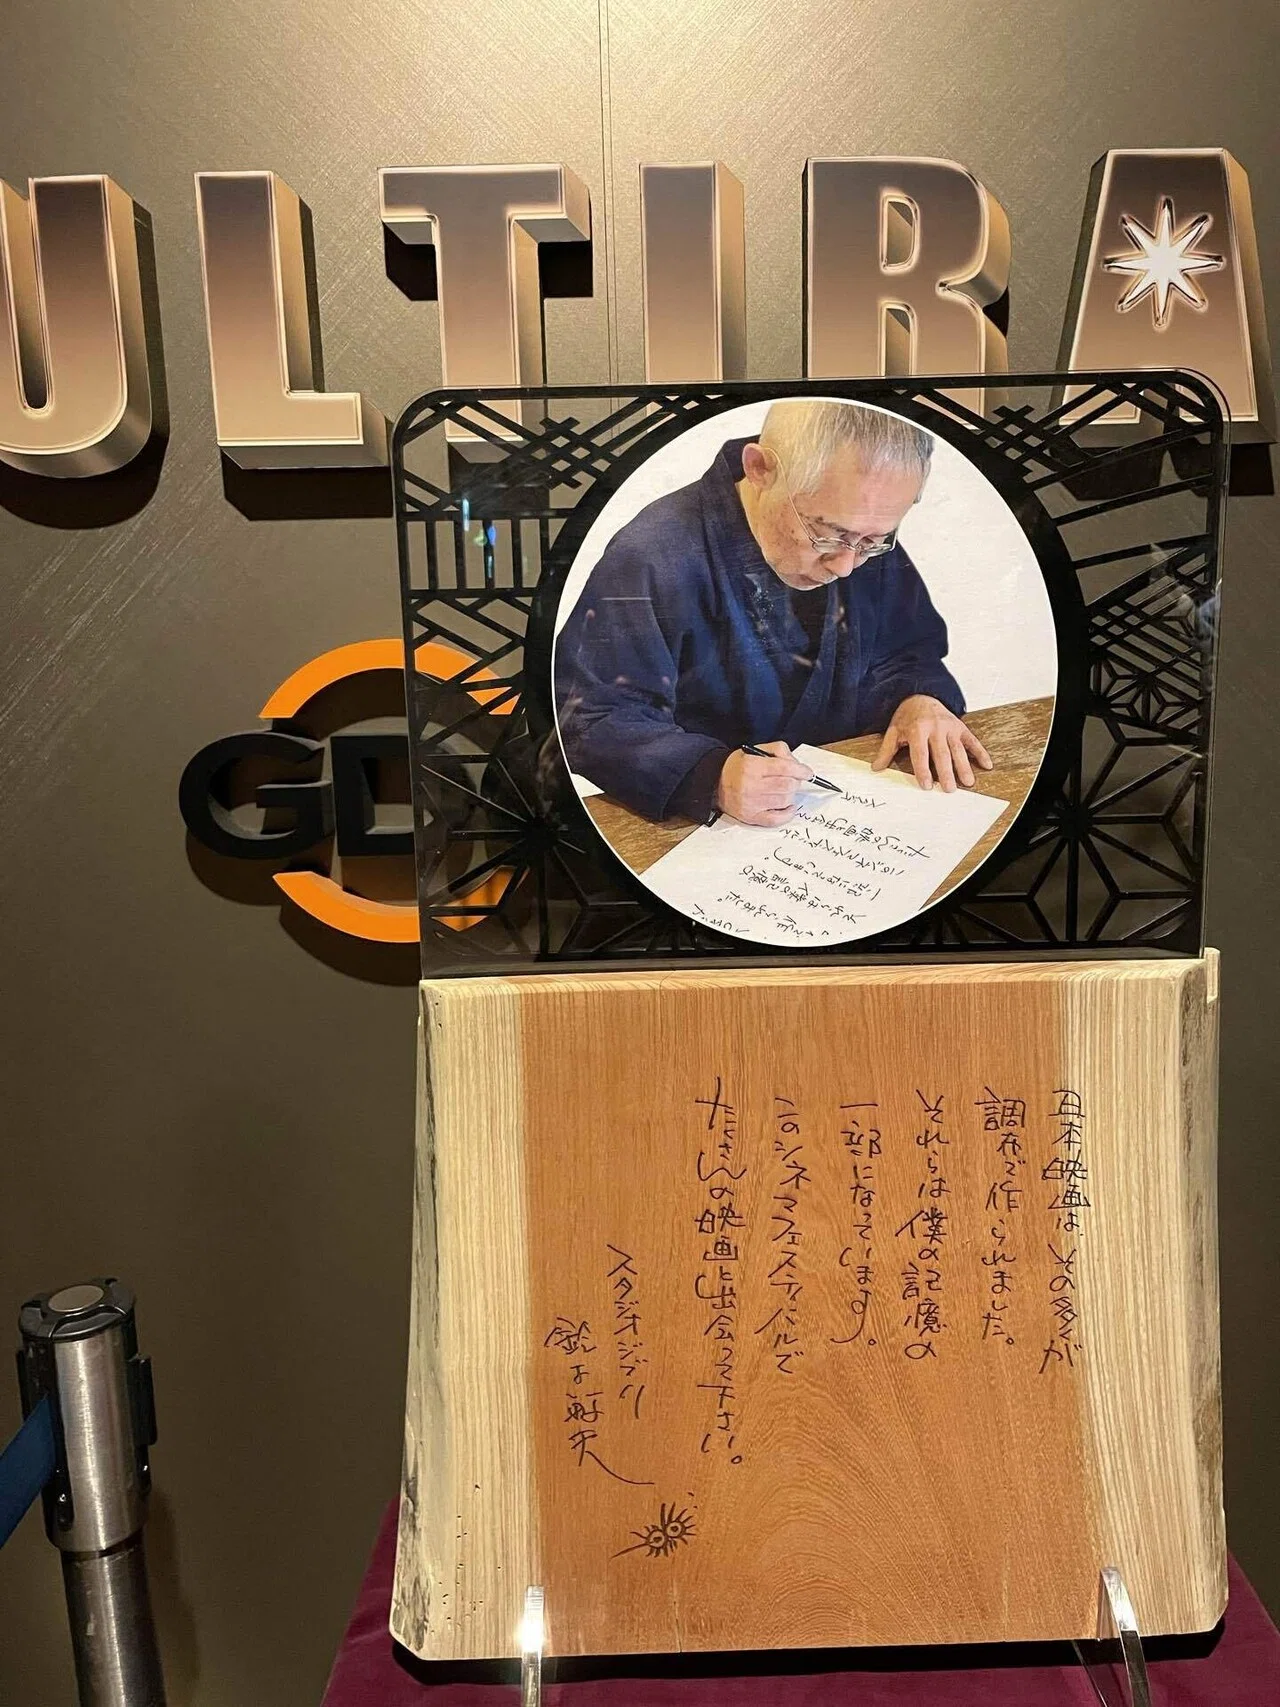 ULTIRA
GD
日本映画は、その多くが
調布で作られました。
それらは僕の記憶の
一部になっています。
このシネマフェスティバルで
たくさんの映画と出会って下さい。
スタジオジブリ
鈴木敏夫